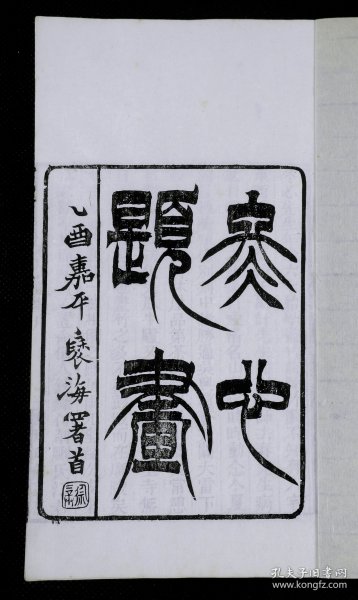 冬心
題畫
乙酉嘉平褎海署首
孔夫子旧书网
www.kongfz.com